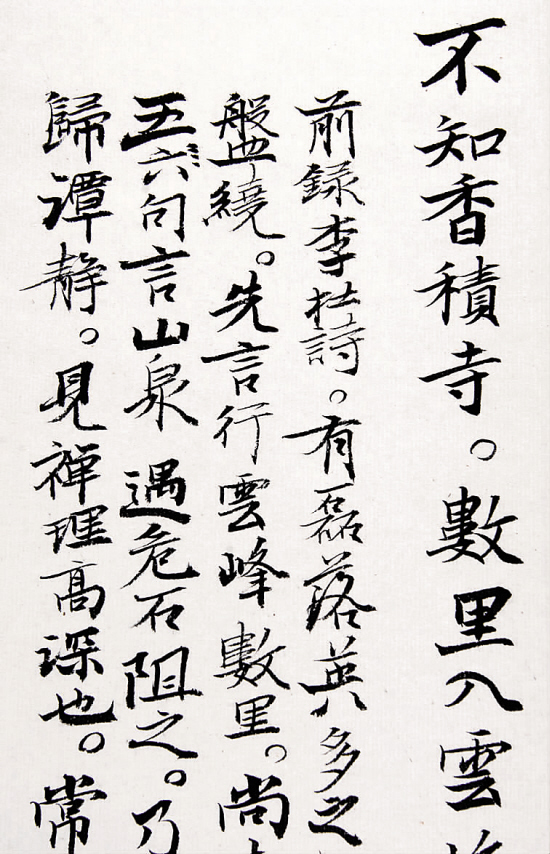 不知香積寺。數里入雲
前録李杜詩。有磊落英多之
盤繞。先言行雲峰數里。尚
五六句言山泉遇危石阻之。乃
歸潭静。見禪理高深也。常